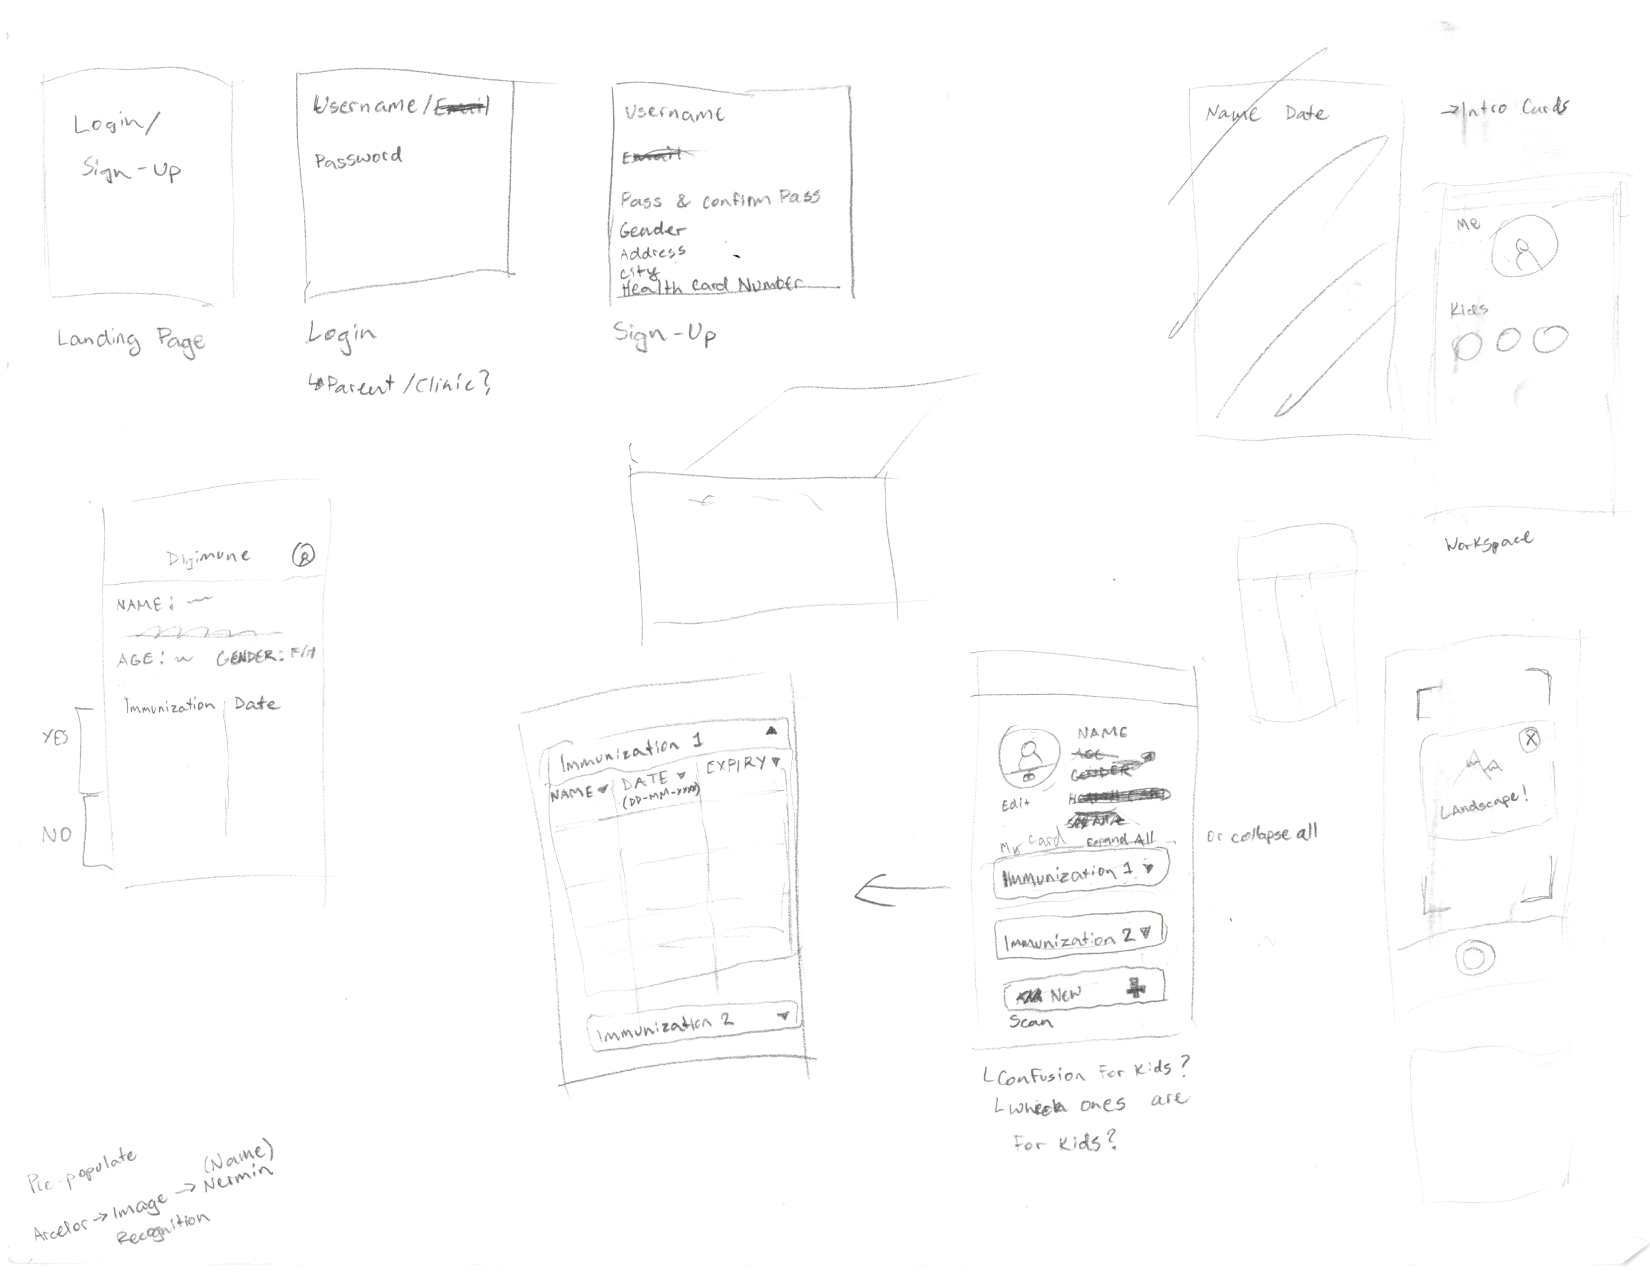 Login/
Sign-Up
Landing Page
Username/Email
Password
Login
↳Parent/Clinic?
Username
Email
Pass & Confirm Pass
Gender
Address
City
Health Card Number
Sign-Up
Name Date
→Intro Cards
Me
Kids
Workspace
Digimune
NAME:
AGE: GENDER: F/M
Immunization Date
YES
NO
Immunization 1 ▲
NAME ▼ DATE ▼ EXPIRY ▼
(DD-MM-YYYY)
Immunization 2 ▼
NAME
AGE
GENDER
HEALTH CARD
Edit
My Card Expand All
or collapse all
Immunization 1 ▼
Immunization 2 ▼
New +
Scan
└Confusion for kids?
└which ones are
for kids?
X
Landscape!
Pre-populate
Arcelor → Image → Nermin
(Name)
Recognition